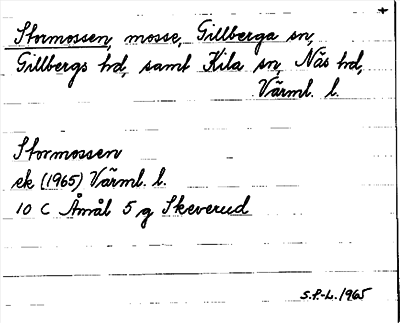 Stormossen, mosse, Gillberga sn,
Gillbergs hd, samt Kila sn, Näs hd,
Värml. l.
Stormossen
ek (1965) Värml. l.
10 C Åmål 5 g Skeverud
S.P.-L. 1965